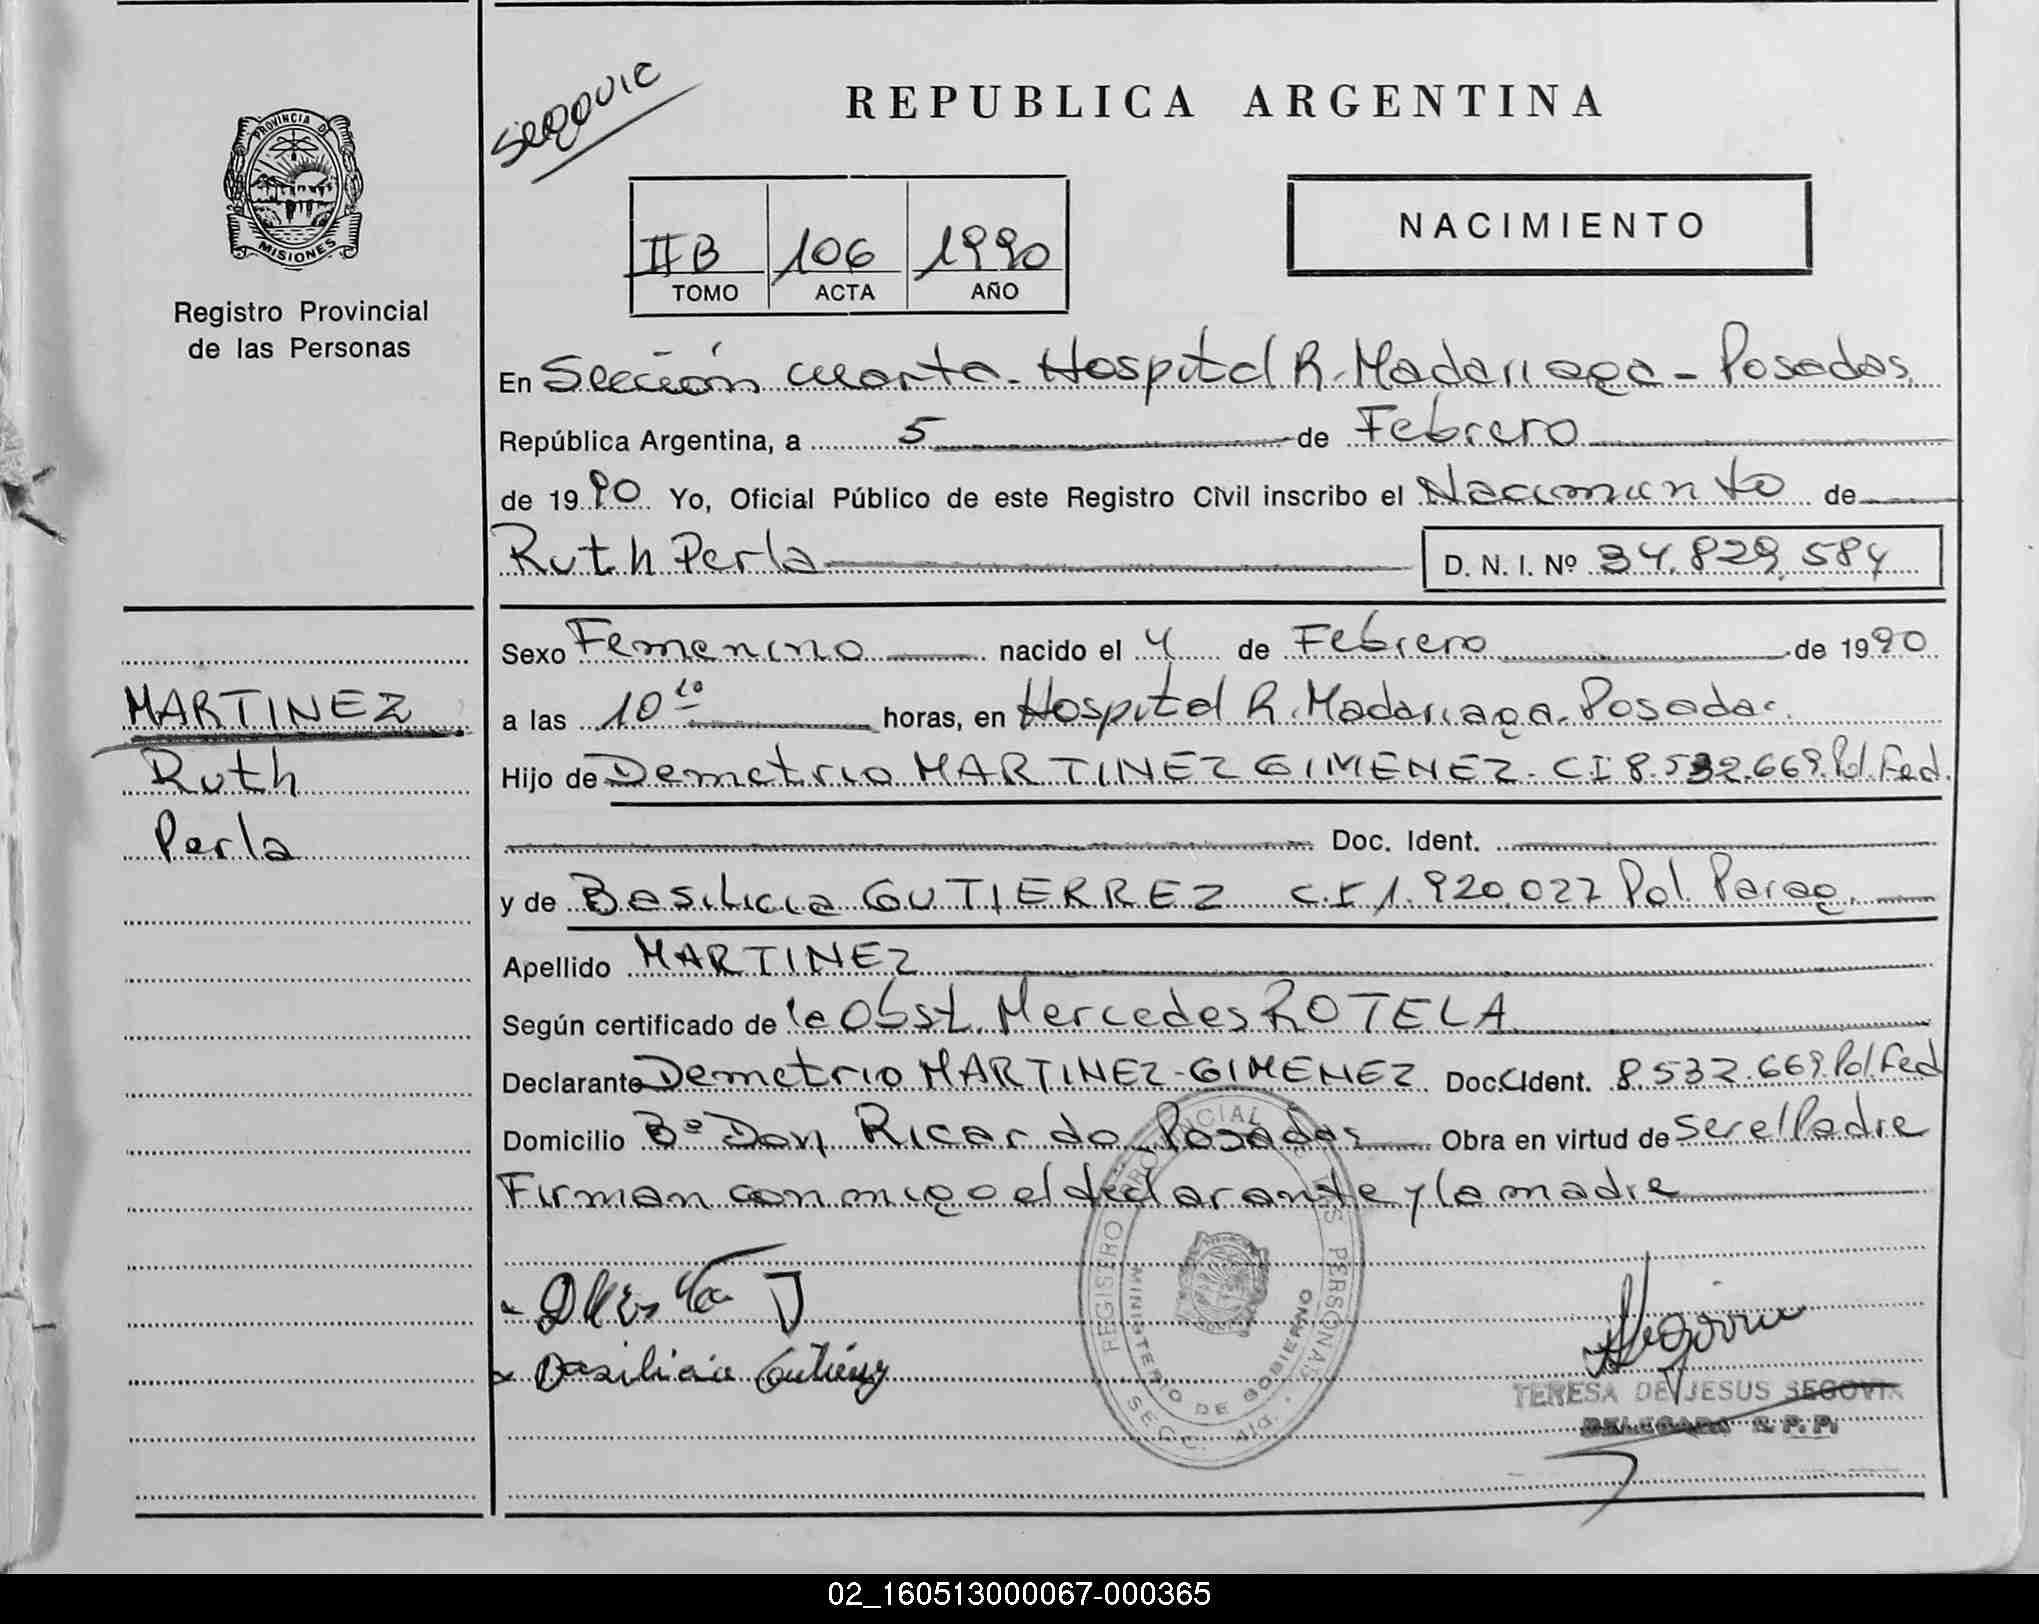 Segovia
REPUBLICA ARGENTINA
PROVINCIA DE
MISIONES
Registro Provincial
de las Personas
II B 106 1990
TOMO ACTA AÑO
NACIMIENTO
En Sección cuarta - Hospital R. Madariaga - Posadas
República Argentina, a 5 de Febrero
de 1990 Yo, Oficial Público de este Registro Civil inscribo el Nacimiento de
Ruth Perla D. N. I. Nº 34.829.584
Sexo Femenino nacido el 4 de Febrero de 1990
a las 10 10 horas, en Hospital R. Madariaga. Posadas.
Hijo de Demetrio MARTINEZ GIMENEZ. CI 8.532.669. Pol. Fed.
Doc. Ident.
y de Basilicia GUTIERREZ C.I 1.920.027 Pol. Parag.
Apellido MARTINEZ
Según certificado de la Obst. Mercedes ROTELA
Declarante Demetrio MARTINEZ-GIMENEZ Doc. CIdent. 8.532.669. Pol. Fed
Domicilio Bº Don Ricardo. Posadas Obra en virtud de ser el Padre
Firman conmigo el declarante y la madre
MARTINEZ
Ruth
Perla
Basilicia Gutiérrez
REGISTRO PROVINCIAL DE LAS PERSONAS
MINISTERIO DE GOBIERNO
Segovia
TERESA DE JESUS SEGOVIA
DELEGADO R. P. P.
02_160513000067-000365